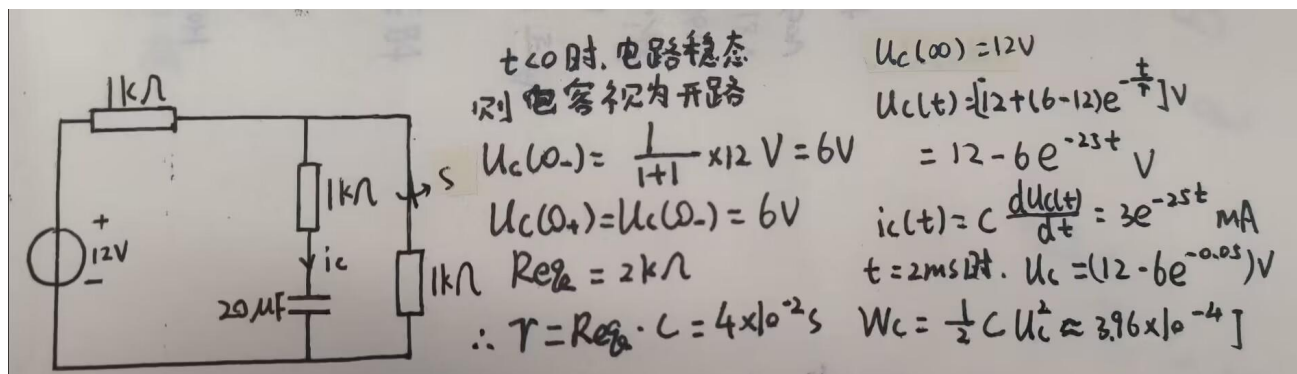 1kΩ
1kΩ
S
+
12V
-
ic
1kΩ
20μF
t<0时,电路稳态
则电容视为开路
Uc(0-)= 1/(1+1) ×12 V = 6V
Uc(0+)=Uc(0-) = 6V
Req = 2kΩ
∴ τ = Req · C = 4×10^-2 s
Uc(∞) = 12V
Uc(t)=[12+(6-12)e^(-t/τ)]V
= 12-6e^(-25t) V
ic(t) = C dUc(t)/dt = 3e^(-25t) mA
t=2ms时. Uc =(12-6e^(-0.05))V
Wc = 1/2 C Uc^2 ≈ 3.96×10^-4 J